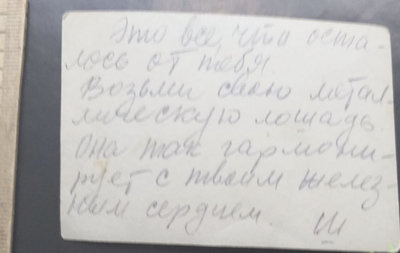 Это все, что оста-
лось от тебя.
Возьми свою метал-
лическую лошадь
Она так гармони-
рует с твоим желез-
ным сердцем.
Ш